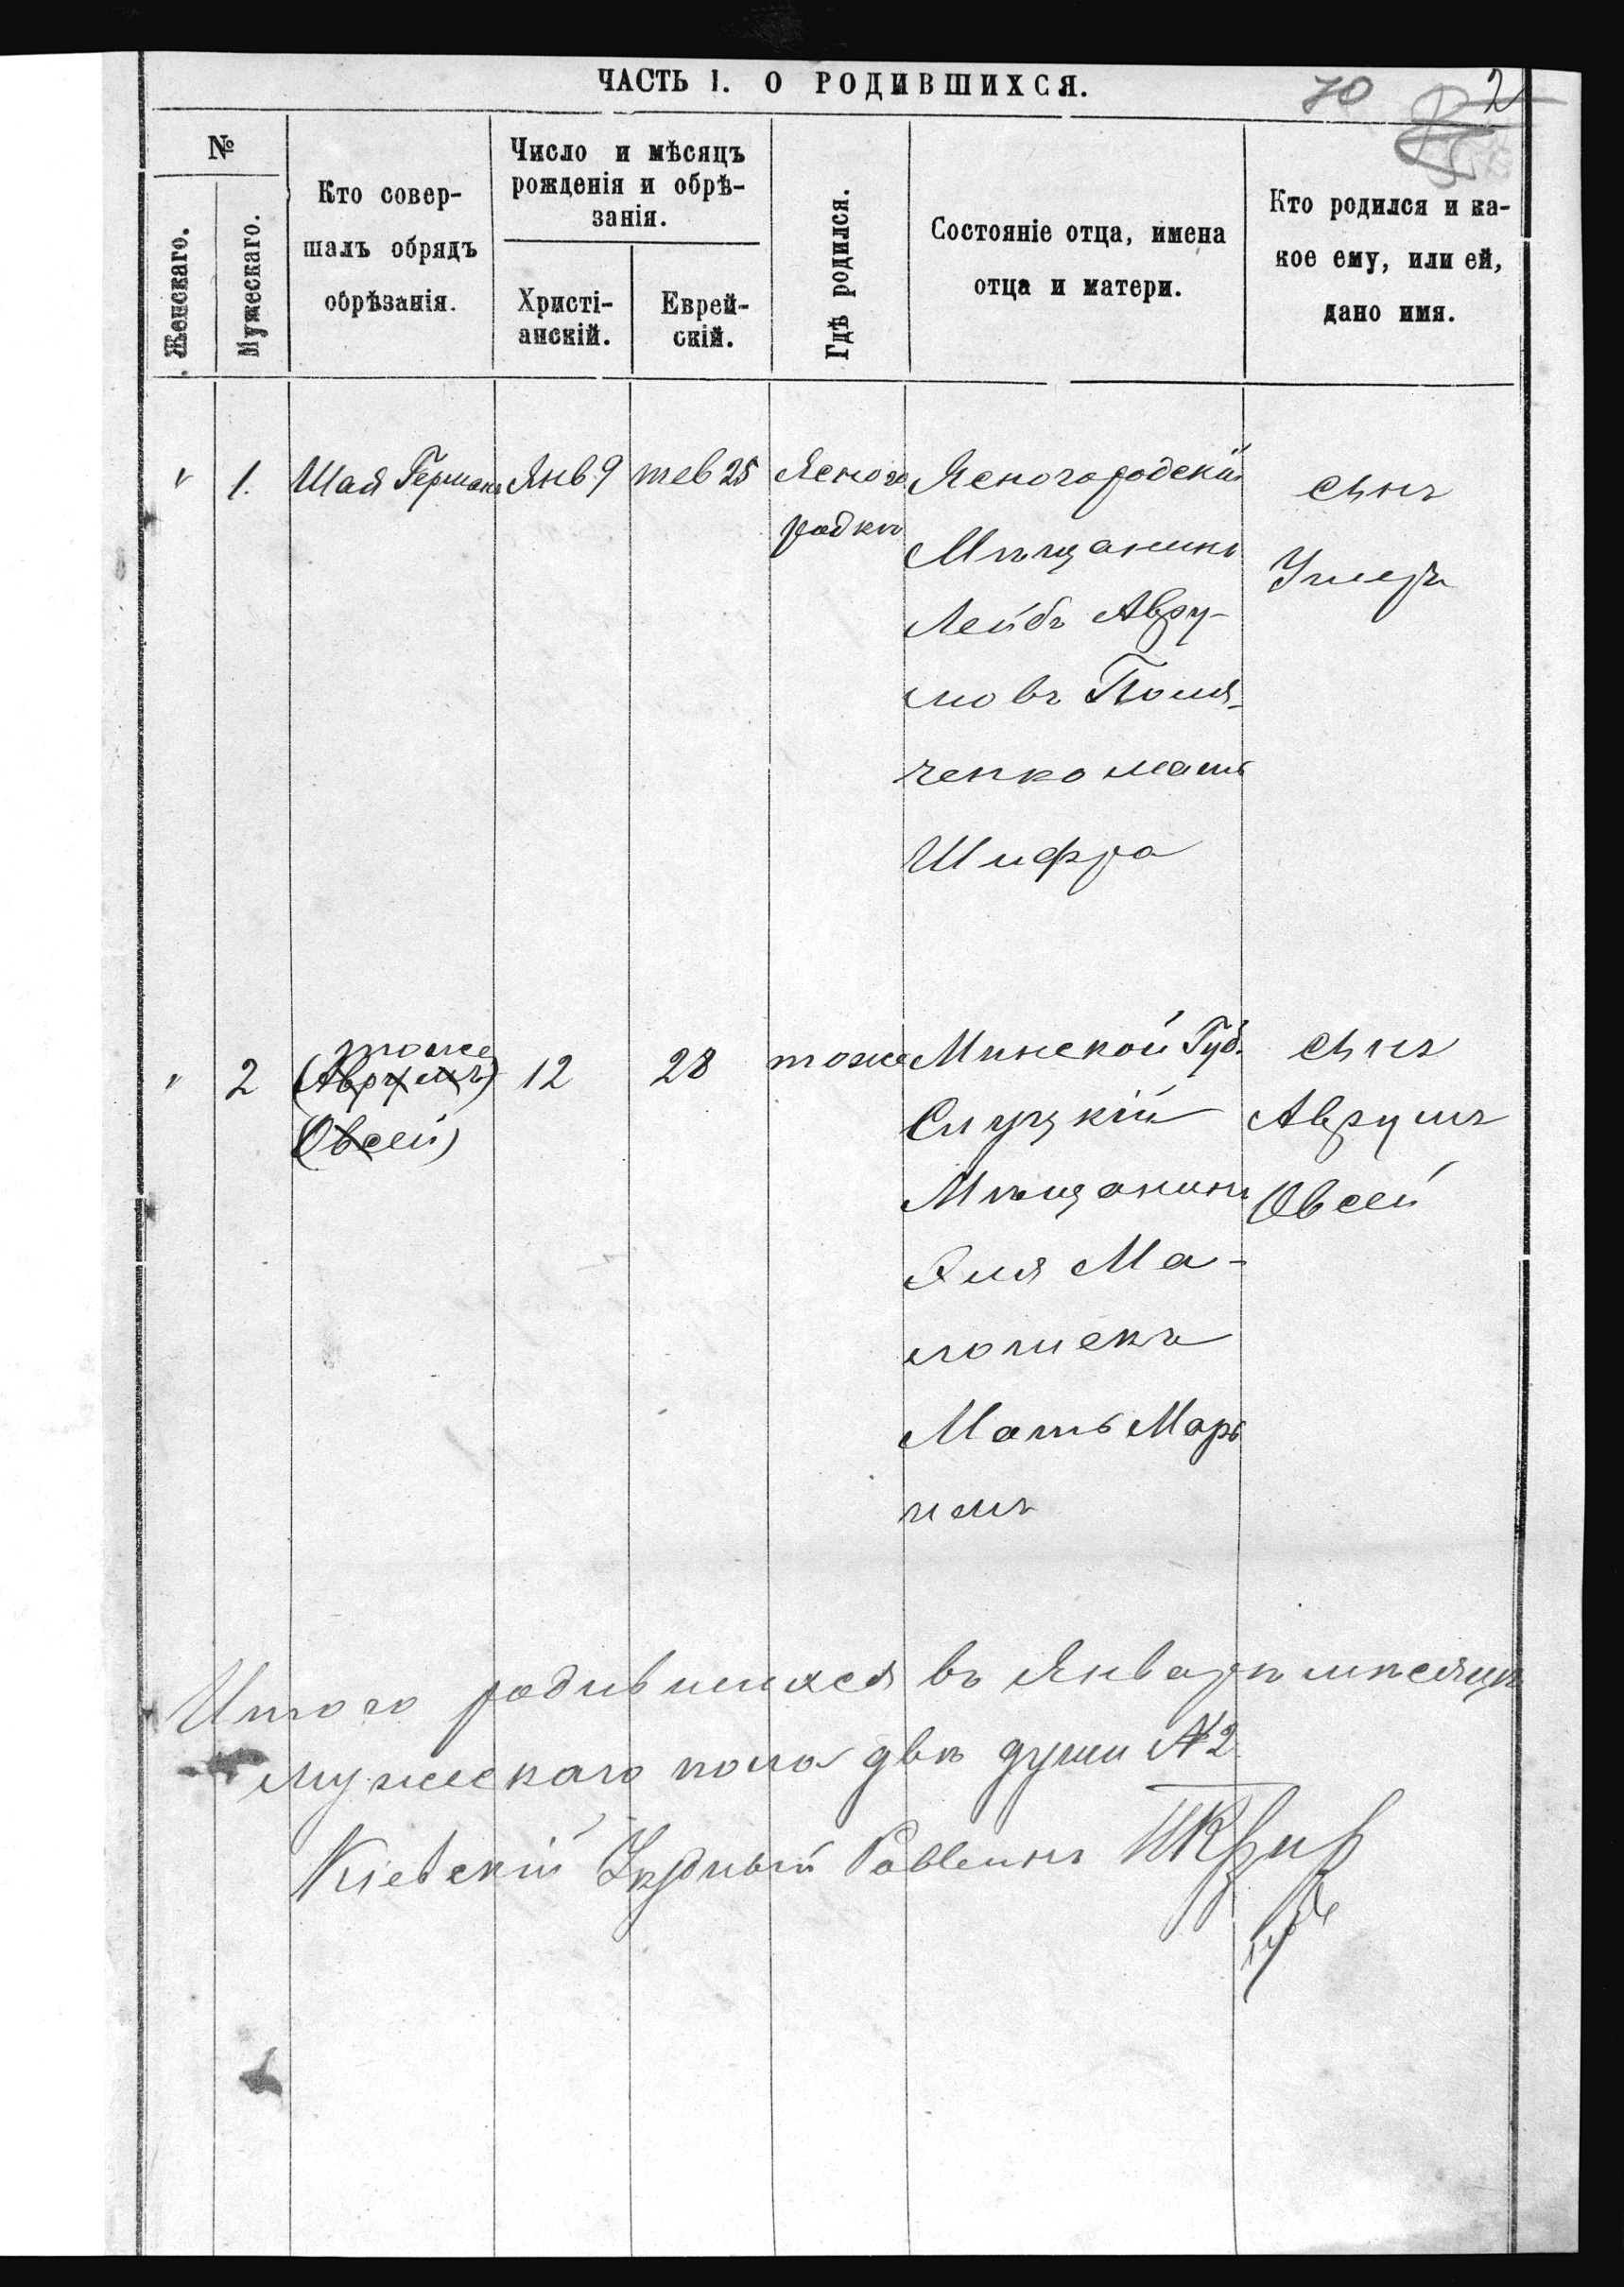 ЧАСТЬ I. О РОДИВШИХСЯ.
70
2
№
Женскаго.
Мужескаго.
Кто совер-
шалъ обрядъ
обрѣзанія.
Число и мѣсяцъ
рожденія и обрѣ-
занія.
Христі-
анскій.
Еврей-
скій.
Гдѣ родился.
Состояніе отца, имена
отца и матери.
Кто родился и ка-
кое ему, или ей,
дано имя.
" 1. Шая Германъ Янв 9 тев 25
Ясного
родкѣ
Ясногородскій
Мѣщанинъ
Лейбъ Авру-
мовъ
ченко мать
Шифра
сынъ
Умеръ
" 2
тоже
(Аврумъ)
(Овсей)
12 28 тоже
Минской Губ.
Слуцкій
Мѣщанинъ
Эля Ма-
Мать Марь
сынъ
Аврумъ
Овсей
Итого родившихся въ Январѣ мѣсяцѣ
мужескаго пола двѣ души № 2
Кіевскій Уѣздный Раввинъ